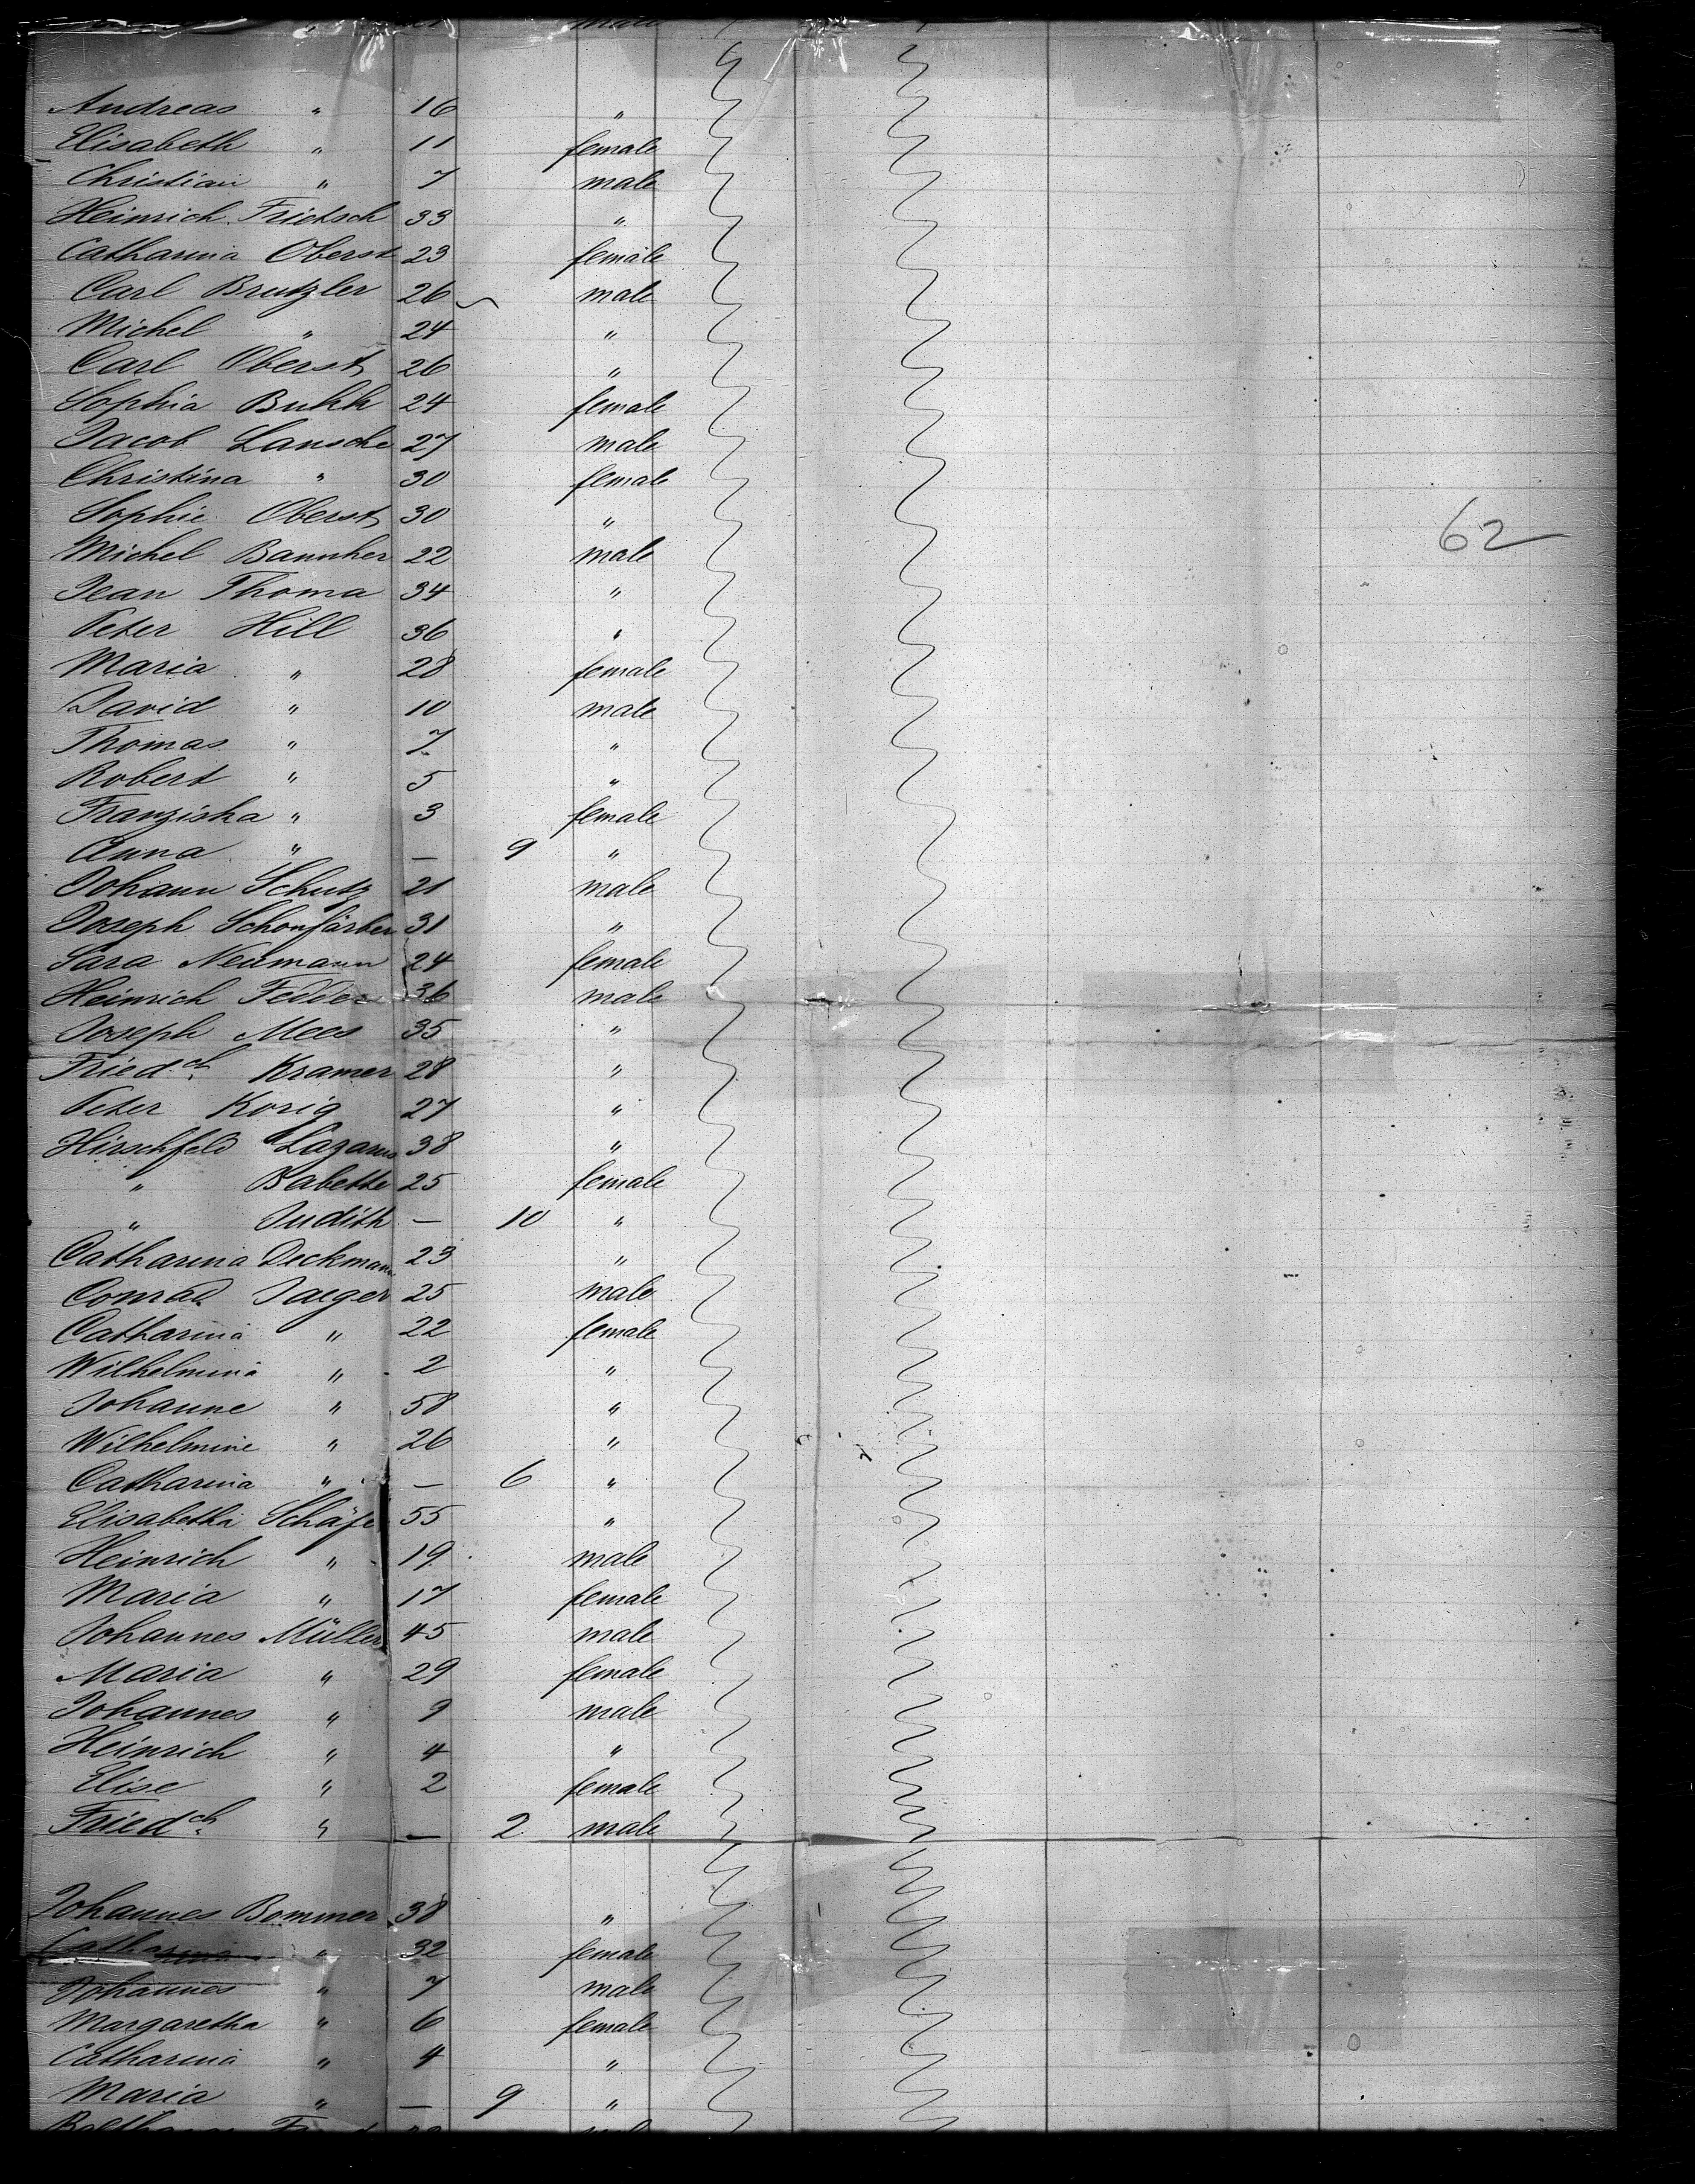 male
Andreas " 16 "
Elisabeth " 11 female
Christian " 7 male
Heinrich Frietsch 33 "
Catharina Oberst 23 female
Carl Brutzler 26 male
Michel " 24 "
Carl Oberst 26 "
Sophia Buhk 24 female
Jacob Lansche 27 male
Christina " 30 female
Sophie Oberst 30 "
62
Michel Bannher 22 male
Jean Thoma 34 "
Peter Hill 36 "
Maria " 28 female
David " 10 male
Thomas " 7 "
Robert " 5 "
Franziska " 3 female
Anna " — 9 "
Johann Schutz 21 male
Joseph Schonfärber 31 "
Sara Neumann 24 female
Heinrich Fedder 36 male
Joseph Mees 35 "
Friedch Kramer 28 "
Peter Korig 27 "
Hirschfeld Lazarus 38 "
" Babette 25 female
" Judith — 10 "
Catharina Deckmann 23 "
Conrad Jaeger 25 male
Catharina " 22 female
Wilhelmina " 2 "
Johanne " 58 "
Wilhelmine " 26 "
Catharina " — 6 "
Elisabetha Schäfe 55 "
Heinrich " 19 male
Maria " 17 female
Johannes Müller 45 male
Maria " 29 female
Johannes " 9 male
Heinrich " 4 "
Elise " 2 female
Friedch " — 2 male
Johannes Bommer 38 "
Catharina " 32 female
Johannes " 7 male
Margaretha " 6 female
Catharina " 4 "
Maria " — 9 "